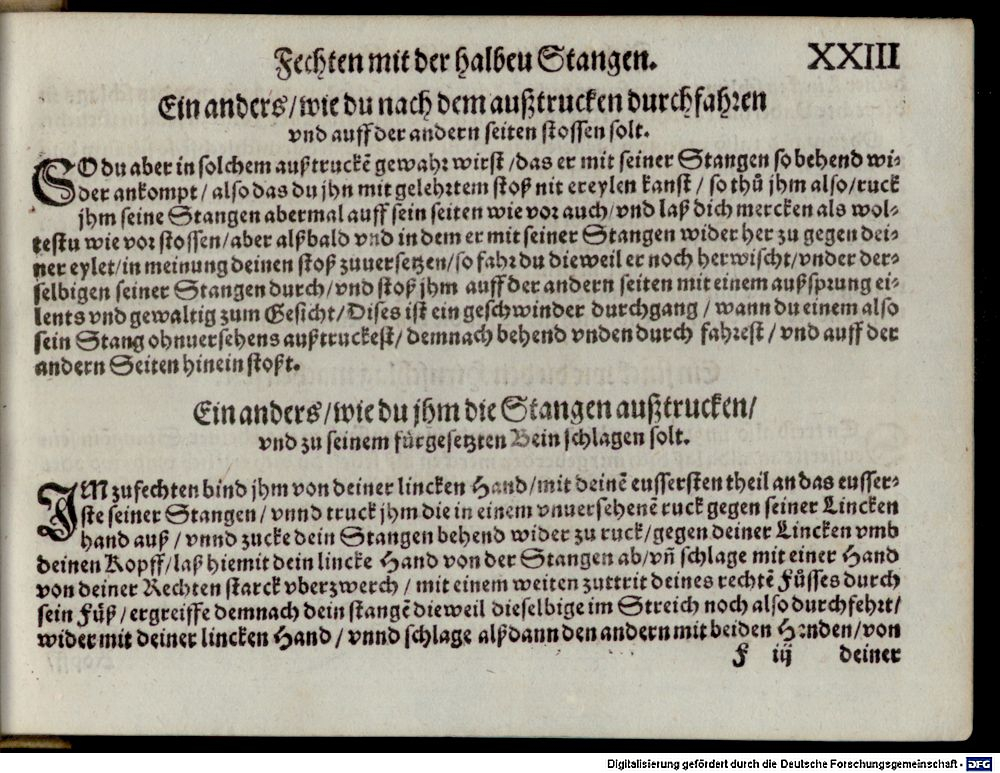 Fechten mit der halbeu Stangen. XXIII
Ein anders/wie du nach dem außtrucken durchfahren
vnd auff der andern seiten stossen solt.
SO du aber in solchem außtruckẽ gewahr wirst/das er mit seiner Stangen so behend wi-
der ankompt/also das du jhn mit gelehrtem stoß nit ereylen kanst/so thů jhm also/ruck
jhm seine Stangen abermal auff sein seiten wie vor auch/vnd laß dich mercken als wol-
testu wie vor stossen/aber alßbald vnd in dem er mit seiner Stangen wider her zu gegen dei-
ner eylet/in meinung deinen stoß zuuersetzen/so fahr du dieweil er noch herwischt/vnder der-
selbigen seiner Stangen durch/vnd stoß jhm auff der andern seiten mit einem außsprung ei-
lents vnd gewaltig zum Gesicht/Dises ist ein geschwinder durchgang/wann du einem also
sein Stang ohnuersehens außtruckest/demnach behend vnden durch fahrest/vnd auff der
andern Seiten hinein stoßt.
Ein anders/wie du jhm die Stangen außtrucken/
vnd zu seinem fürgesetzten Bein schlagen solt.
IM zufechten bind jhm von deiner lincken Hand/mit deinẽ eussersten theil an das eusser-
ste seiner Stangen/vnnd truck jhm die in einem vnuersehenẽ ruck gegen seiner Lincken
hand auß/vnnd zucke dein Stangen behend wider zu ruck/gegen deiner Lincken vmb
deinen Kopff/laß hiemit dein lincke Hand von der Stangen ab/vñ schlage mit einer Hand
von deiner Rechten starck vberzwerch/mit einem weiten zuttrit deines rechtẽ Fůsses durch
sein Fůß/ergreiffe demnach dein stangẽ dieweil dieselbige im Streich noch also durchfehrt/
wider mit deiner lincken Hand/vnnd schlage alßdann den andern mit beiden Henden/von
F iij deiner
Digitalisierung gefördert durch die Deutsche Forschungsgemeinschaft - DFG